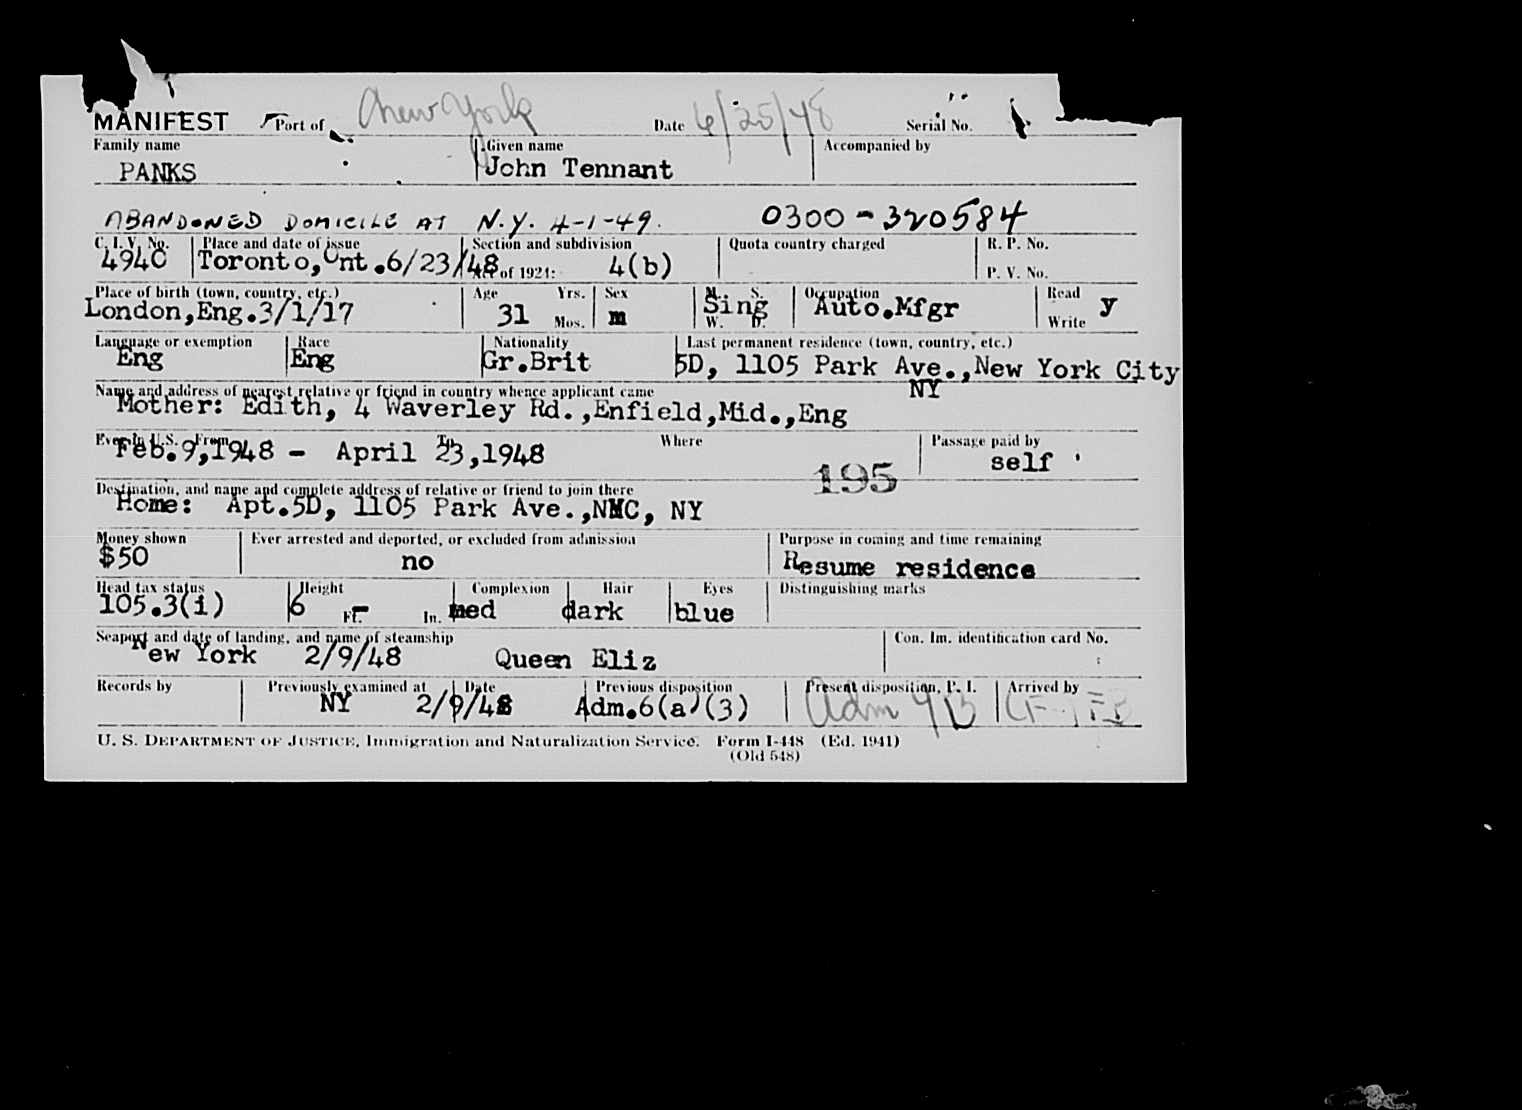 MANIFEST Port of New York Date 6/25/48 Serial No.
Family name Given name Accompanied by
PANKS John Tennant
ABANDONED DOMICILE AT N.Y. 4-1-49. 0300-320584
C. I. V. No. Place and date of issue Section and subdivision Quota country charged R. P. No.
494C Toronto,Ont.6/23/48 Act of 1924: 4(b) P. V. No.
Place of birth (town, country, etc.) Age Yrs. Sex M. S. Occupation Read
London,Eng.3/1/17 31 Mos. m Sing W. D. Auto.Mfgr Write y
Language or exemption Race Nationality Last permanent residence (town, country, etc.)
Eng Eng Gr.Brit 5D, 1105 Park Ave.,New York City
NY
Name and address of nearest relative or friend in country whence applicant came
Mother: Edith, 4 Waverley Rd.,Enfield,Mid.,Eng
Ever in U.S. From To Where Passage paid by
Feb.9,1948 - April 23,1948 self
195
Destination, and name and complete address of relative or friend to join there
Home: Apt.5D, 1105 Park Ave.,NMC, NY
Money shown Ever arrested and deported, or excluded from admission Purpose in coming and time remaining
$50 no Resume residence
Head tax status Height Complexion Hair Eyes Distinguishing marks
105.3(i) 6 Ft. - In. med dark blue
Seaport and date of landing, and name of steamship Con. Im. identification card No.
New York 2/9/48 Queen Eliz
Records by Previously examined at Date Previous disposition Present disposition, P. I. Arrived by
NY 2/9/48 Adm.6(a)(3) Adm
U. S. DEPARTMENT OF JUSTICE, Immigration and Naturalization Service. Form I-448 (Ed. 1941)
(Old 548)